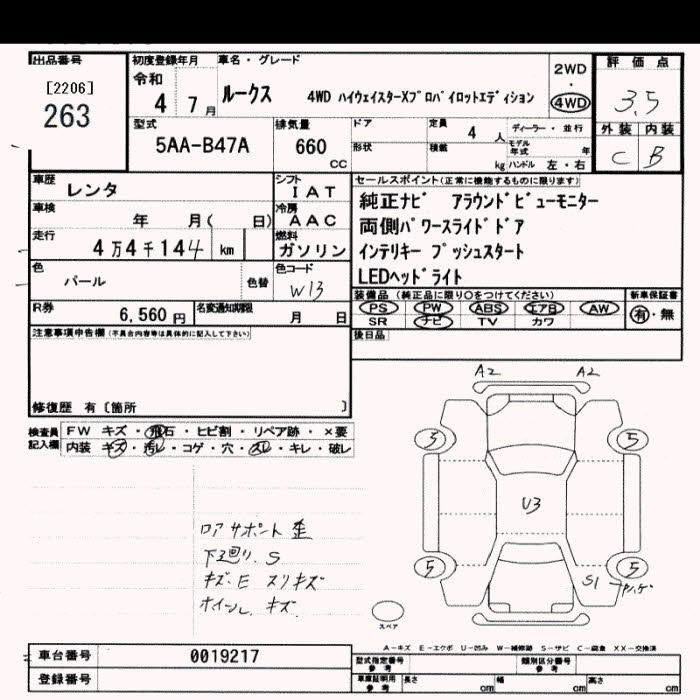 出品番号
[2206]
263
初度登録年月
令和
4 7 月
車名・グレード
ルークス 4WD ハイウェイスターXプロパイロットエディション
2WD
・
4WD
評価点
3.5
外装 内装
C B
型式
5AA-B47A
排気量
660 cc
ドア
形状
定員
4 人
積載
kg
ディーラー・並行
モデル年式 年
ハンドル 左・右
車歴
レンタ
シフト
I A T
車検
年 月( 日)
冷房
A A C
走行
4万4千144 km
燃料
ガソリン
色
パール
色替
色コード
W13
R券
6,560 円
名変通知期限
月 日
セールスポイント(正常に機能するものに限ります)
純正ナビ アラウンドビューモニター
両側パワースライドドア
インテリキー プッシュスタート
LEDヘッドライト
装備品 (純正品に限り○をつけてください)
PS PW ABS エアB AW
SR ナビ TV カワ
新車保証書
有・無
後日品
注意事項申告欄(不具合内容等は具体的に記入して下さい)
修復歴 有〔箇所 〕
検査員記入欄
FW キズ・飛石・ヒビ割・リペア跡・×要
内装 キズ・汚レ・コゲ・穴・スレ・キレ・破レ
ロアサポート歪
下廻り.S
キズ.E スリキズ
ホイール.キズ
A2 A2
5 5
U3
5 5
S1
スペア
A-キズ E-エクボ U-凹み W-補修跡 S-サビ C-腐食 XX-交換済
車台番号
0019217
登録番号
型式指定番号
参考
類別区分番号
参考
車庫証明用
参考
長さ cm
幅 cm
高さ cm